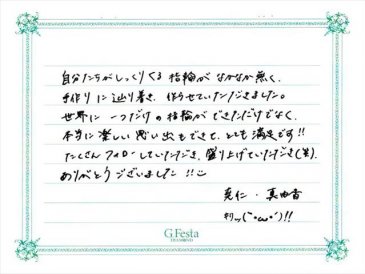 自分たちがしっくりくる指輪がなかなか無く、
手作りに辿り着き、作らせていただきました。
世界に一つだけの指輪ができただけでなく、
本当に楽しい思い出もできて、とても満足です!!
たくさんフォローしていただき、盛り上げていただき(笑)
ありがとうございました!!
亮仁・真由香
G.Festa